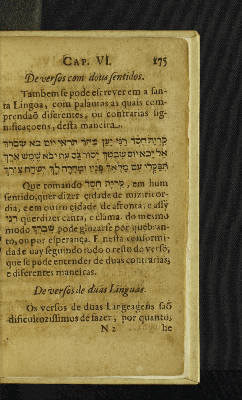 CAP. VI. 175
De versos com dous sentidos.
Tambem se pode escrever em a san-
ta Lingoa, com palauras as quais com-
prendaõ diferentes, ou contrarias sig-
nificaçoens, desta maneira.
קרית חסד רני יען פתר תראי יום בא שברך
Que tomando קרית חסד, em hum
sentido, quer dizer cidade de mizericor-
dia, e em outro cidade de afronta, e assy
רני quer dizer canta, e clama. do mesmo
modo שברך pode glozarse por quebran-
to, ou por esperança. E nesta conformi-
dade vay segundo todo o resto do verso,
que se pode entender de duas contrarias,
e diferentes maneiras.
De versos de duas Linguas.
Os versos de duas Lingeagens saõ
dificultozissimos de fazer, por quanto,
N 2 he